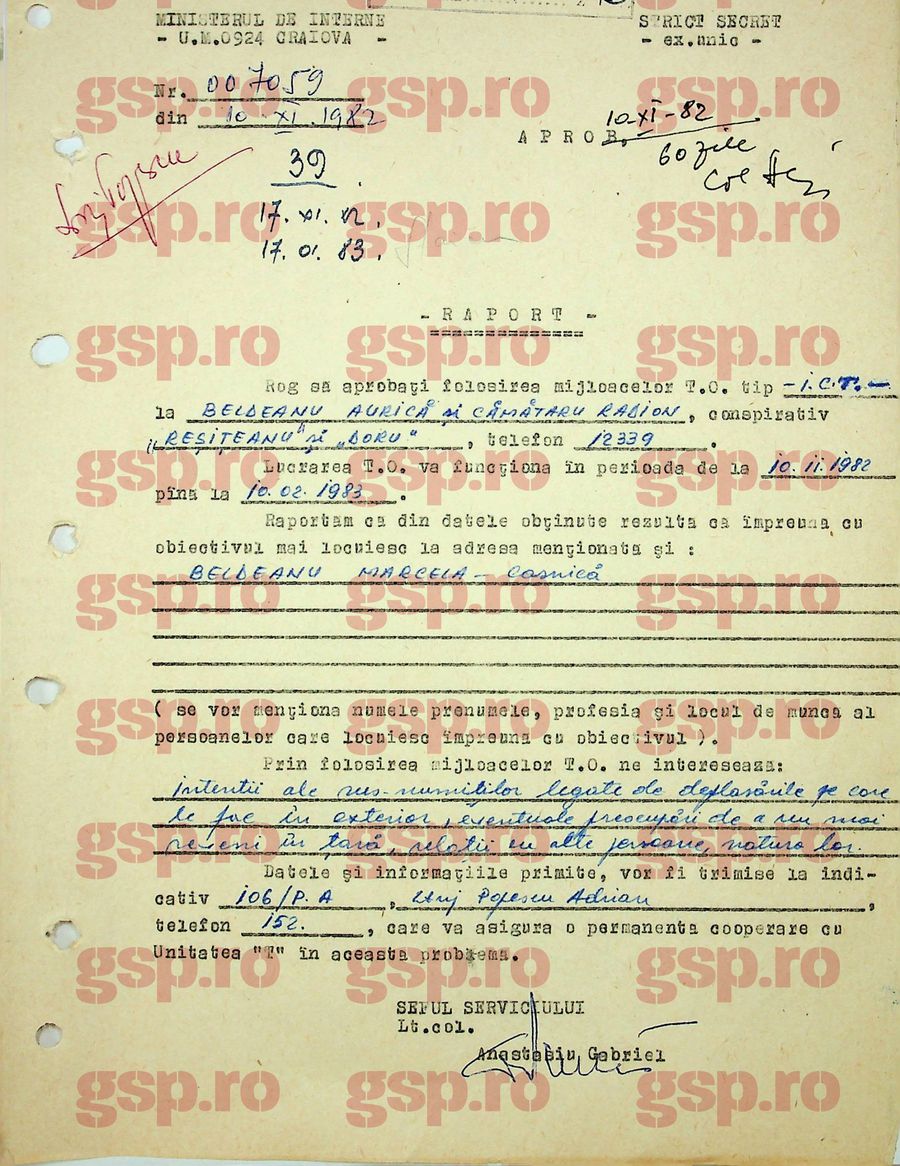 MINISTERUL DE INTERNE
- U.M.0924 CRAIOVA -
STRICT SECRET
- ex.unic -
Nr. 007059
din 10.XI.1982
A P R O B,
10-XI-82
60 zile
Col
39
17. XI. 82.
17. 01. 83.
- R A P O R T -
Rog să aprobați folosirea mijloacelor T.O. tip - I.C.T. -
la BELDEANU AURICĂ și CĂMĂTARU RADION, conspirativ
"REȘIȚEANU" și "DORU", telefon 12339.
Lucrarea T.O. va funcționa în perioada de la 10.11.1982
pîna la 10.02.1983.
Raportam ca din datele obținute rezulta ca împreuna cu
obiectivul mai locuiesc la adresa menționata și :
BELDEANU MARCELA - casnică
( se vor menționa numele prenumele, profesia și locul de munca al
persoanelor care locuiesc împreuna cu obiectivul ).
Prin folosirea mijloacelor T.O. ne intereseaza:
intenții ale sus-numiților legate de deplasările pe care
le fac în exterior, eventuale preocupări de a nu mai
reveni în țară, relații cu alte persoane, natura lor.
Datele și informațiile primite, vor fi trimise la indi-
cativ 106/P.A, Popescu Adrian,
telefon 152., care va asigura o permanenta cooperare cu
Unitatea "T" în aceasta problema.
SEFUL SERVICIULUI
Lt.col.
Anastasiu Gabriel
gsp.ro